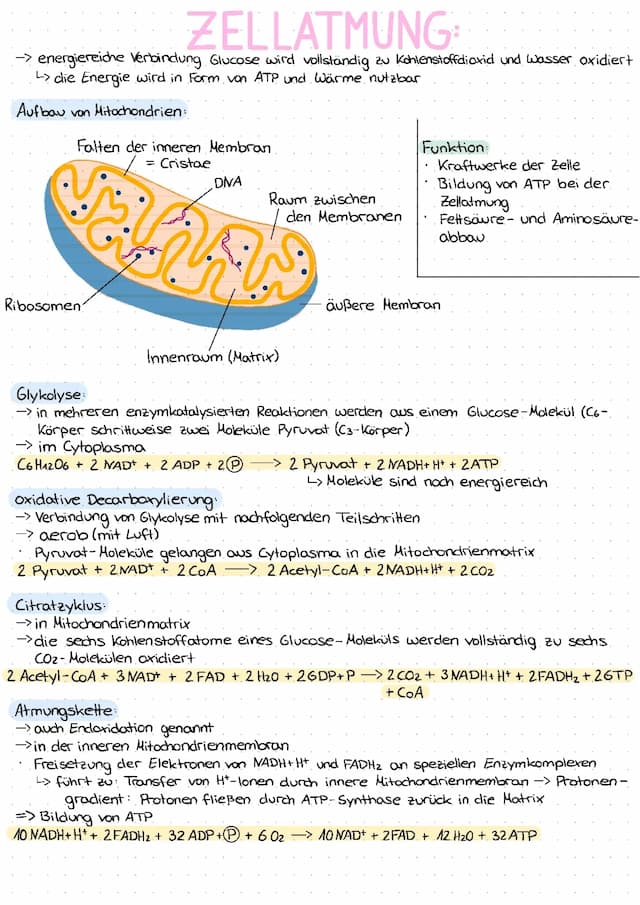 ZELLATMUNG:
→ energiereiche Verbindung Glucose wird vollständig zu Kohlenstoffdioxid und Wasser oxidiert
↳ die Energie wird in Form von ATP und Wärme nutzbar
Aufbau von Mitochondrien:
Falten der inneren Membran
= Cristae
DNA
Raum zwischen
den Membranen
Ribosomen
äußere Membran
Innenraum (Matrix)
Funktion:
· Kraftwerke der Zelle
· Bildung von ATP bei der
Zellatmung
· Fettsäure- und Aminosäure-
abbau
Glykolyse:
→ in mehreren enzymkatalysierten Reaktionen werden aus einem Glucose-Molekül (C6-
Körper schrittweise zwei Moleküle Pyruvat (C3-Körper)
→ im Cytoplasma
C6H12O6 + 2 NAD⁺ + 2 ADP + 2Ⓟ → 2 Pyruvat + 2NADH+H⁺ + 2ATP
↳ Moleküle sind noch energiereich
oxidative Decarboxylierung:
→ Verbindung von Glykolyse mit nachfolgenden Teilschritten
→ aerob (mit Luft)
· Pyruvat-Moleküle gelangen aus Cytoplasma in die Mitochondrienmatrix
2 Pyruvat + 2NAD⁺ + 2 CoA → 2 Acetyl-CoA + 2NADH+H⁺ + 2CO2
Citratzyklus:
→ in Mitochondrienmatrix
→ die sechs Kohlenstoffatome eines Glucose-Moleküls werden vollständig zu sechs
CO2-Molekülen oxidiert
2 Acetyl-CoA + 3NAD⁺ + 2 FAD + 2 H2O + 2GDP+P → 2CO2 + 3NADH+H⁺ + 2FADH2 + 2GTP
+ CoA
Atmungskette:
→ auch Endoxidation genannt
→ in der inneren Mitochondrienmembran
· Freisetzung der Elektronen von NADH+H⁺ und FADH2 an speziellen Enzymkomplexen
↳ führt zu: Transfer von H⁺-Ionen durch innere Mitochondrienmembran → Protonen-
gradient: Protonen fließen durch ATP-Synthase zurück in die Matrix
=> Bildung von ATP
10 NADH+H⁺ + 2FADH2 + 32 ADP+Ⓟ + 6 O2 → 10 NAD⁺ + 2FAD + 12 H2O + 32 ATP